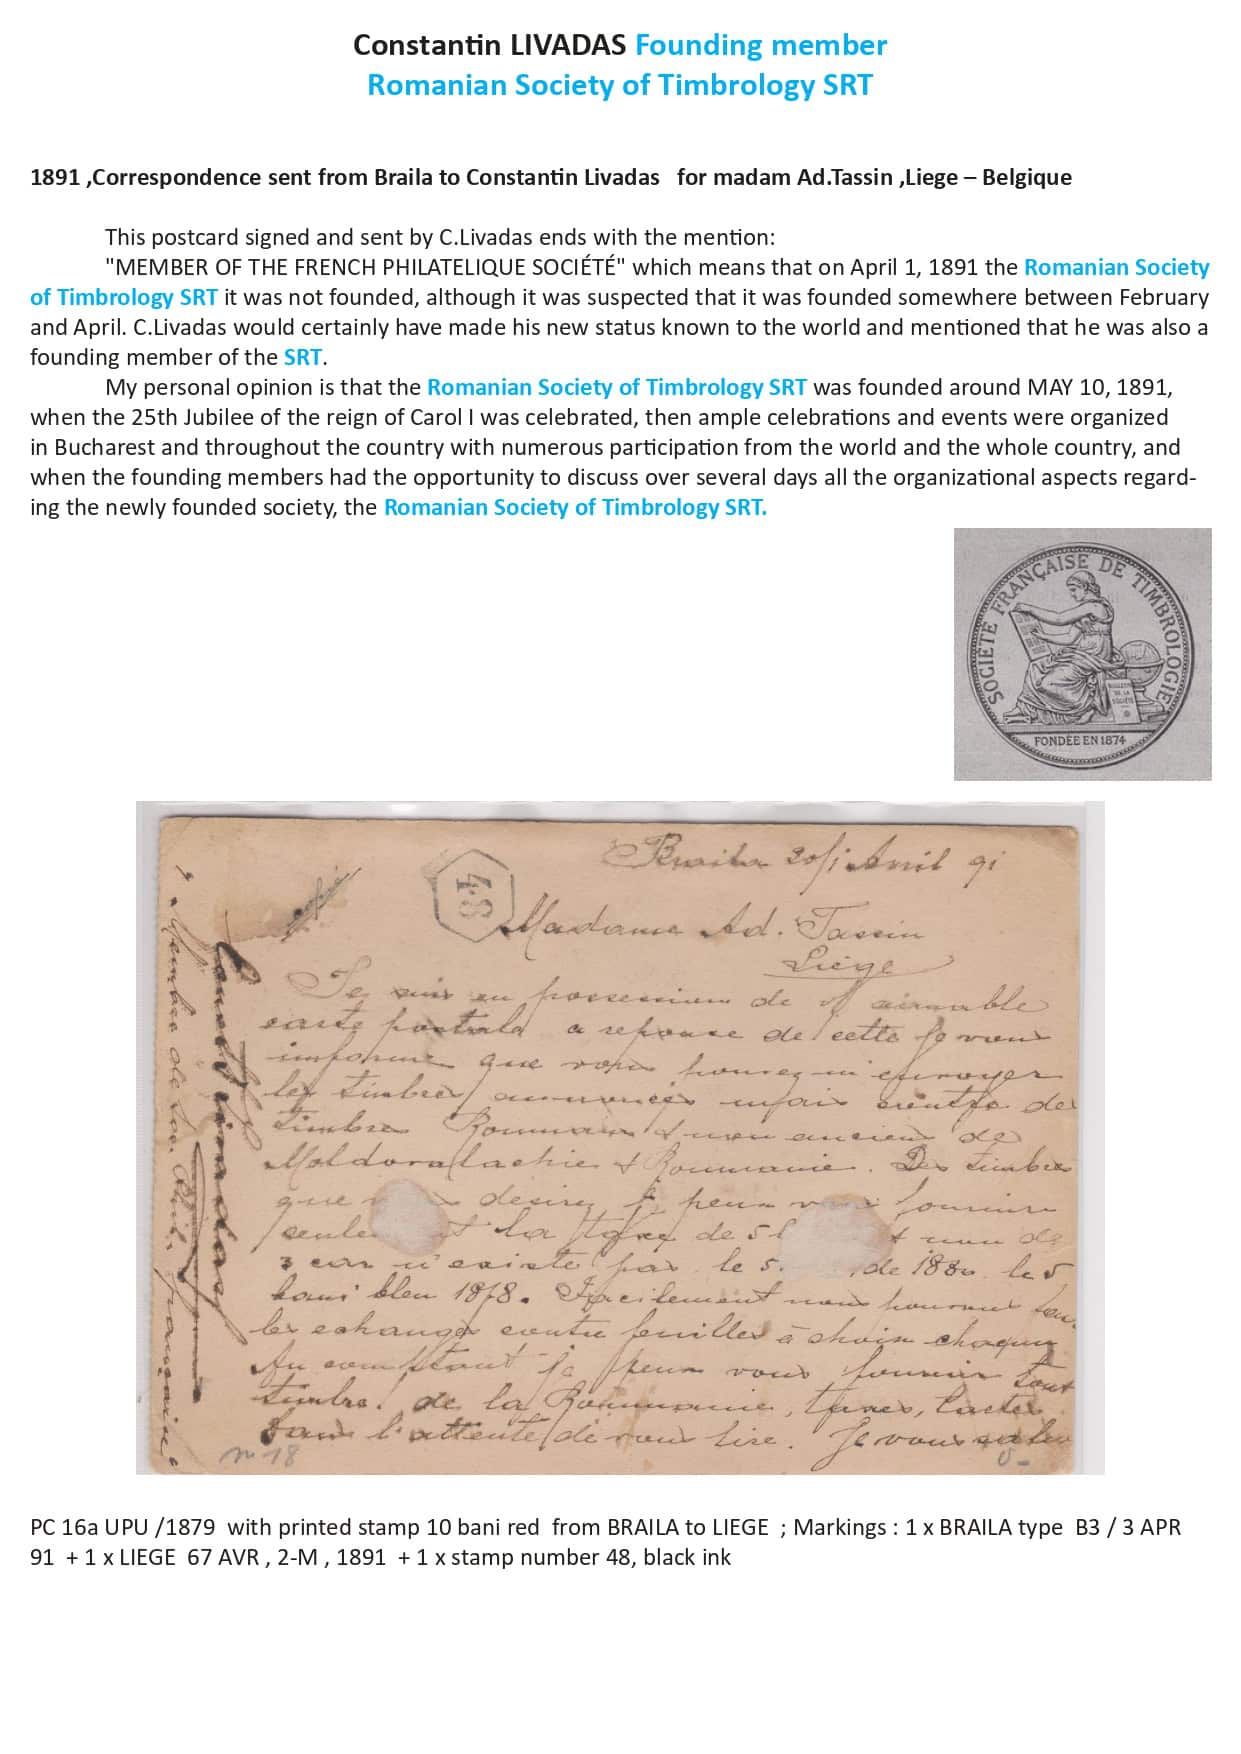 Constantin LIVADAS Founding member
Romanian Society of Timbrology SRT
1891 ,Correspondence sent from Braila to Constantin Livadas for madam Ad.Tassin ,Liege – Belgique
This postcard signed and sent by C.Livadas ends with the mention:
"MEMBER OF THE FRENCH PHILATELIQUE SOCIÉTÉ" which means that on April 1, 1891 the Romanian Society
of Timbrology SRT it was not founded, although it was suspected that it was founded somewhere between February
and April. C.Livadas would certainly have made his new status known to the world and mentioned that he was also a
founding member of the SRT.
My personal opinion is that the Romanian Society of Timbrology SRT was founded around MAY 10, 1891,
when the 25th Jubilee of the reign of Carol I was celebrated, then ample celebrations and events were organized
in Bucharest and throughout the country with numerous participation from the world and the whole country, and
when the founding members had the opportunity to discuss over several days all the organizational aspects regard-
ing the newly founded society, the Romanian Society of Timbrology SRT.
SOCIÉTÉ FRANÇAISE DE TIMBROLOGIE
BULLETIN
DE LA
SOCIÉTÉ
FONDÉE EN 1874
Braila 20/1 Avril 91
48
Madame Ad. Tassin
Liége
Je suis en possession de aimable
carte postale a reponse de cette Je vous
informe que vous envoyer
les timbres mais contre de
timbres Roumain & non anciens de
& Roumanie. Des timbres
que desirez je peux fournir
la de 5
3 car n'existe pas le 5 de 1880 le 5
bani bleu 1878. Facilement nous
les echanges contre feuilles à choix chaqun
Au je peux vous fournir tout
timbre de la Roumanie, taxes, cartes
Dans l'attente de vous lire. Je vous salue
Const Livadas
Membre de Soc. Phil. française
No 18
PC 16a UPU /1879 with printed stamp 10 bani red from BRAILA to LIEGE ; Markings : 1 x BRAILA type B3 / 3 APR
91 + 1 x LIEGE 67 AVR , 2-M , 1891 + 1 x stamp number 48, black ink